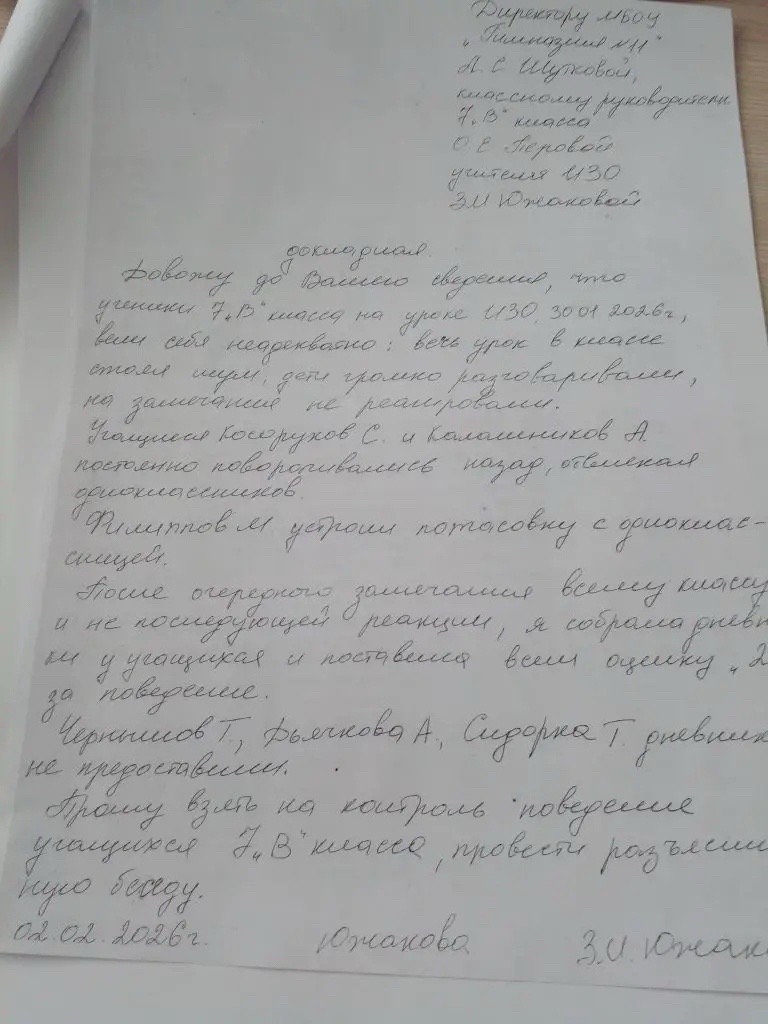 Директору МБОУ
"Гимназия №11"
А. С. Шутковой,
классному руководителю
7 "В" класса
О Е Перовой
учителя ИЗО
З.И Южаковой
докладная.
Довожу до Вашего сведения, что
ученики 7 "В" класса на уроке ИЗО, 30 01 2026г,
вели себя неадекватно: весь урок в классе
стоял шум, дети громко разговаривали,
на замечания не реагировали.
Учащиеся Косоруков С. и Калашников А.
постоянно поворачивались назад, отвлекая
одноклассников.
Филиппов М. устроил потасовку с одноклас-
сницей.
После очередного замечания всему классу
и не последующей реакции, я собрала дневн
ки у учащихся и поставила всем оценку "2
за поведение.
Чернышов Т., Дьячкова А., Сидорка Т. дневник
не предоставили.
Прошу взять на контроль поведение
учащихся 7 "В" класса, провести разъясни
ную беседу.
02.02.2026г. Южакова З.И. Южак